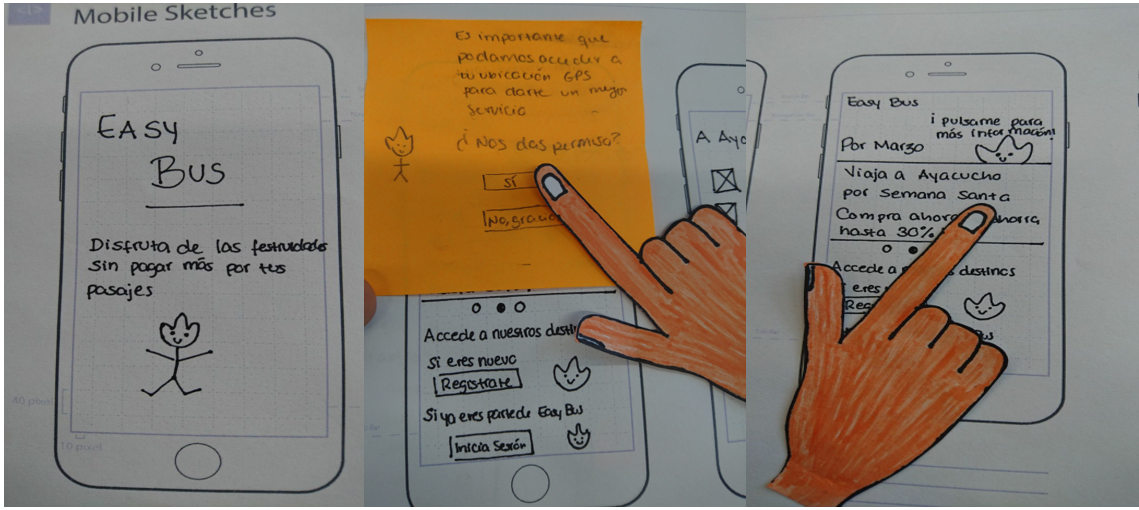 Mobile Sketches
EASY
BUS
Disfruta de las festividades
sin pagar más por tus
pasajes
40 pixel
10 pixel
Es importante que
podamos acceder a
tu ubicación GPS
para darte un mejor
servicio
¿Nos das permiso?
Sí
No, gracias
Accede a nuestros
Si eres nuevo
Registrate
Si ya eres parte de Easy Bus
Inicia Sesión
A Aya
Easy Bus
¡pulsame para
más información!
Por Marzo
Viaja a Ayacucho
por Semana Santa
Compra ahora
hasta 30%
Accede a destinos
eres